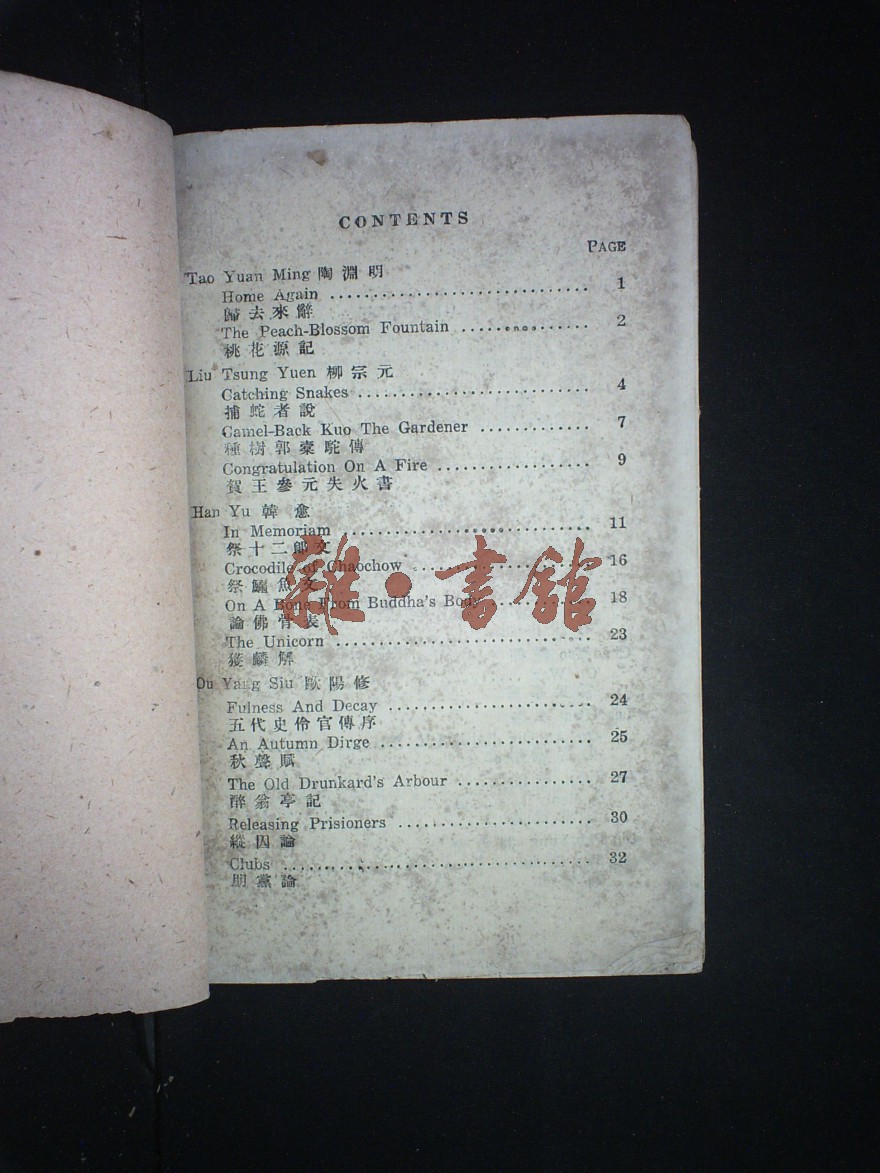 CONTENTS
PAGE
Tao Yuan Ming 陶淵明
Home Again .............................. 1
歸去來辭
The Peach-Blossom Fountain ............... 2
桃花源記
Liu Tsung Yuen 柳宗元
Catching Snakes ........................... 4
捕蛇者說
Camel-Back Kuo The Gardener ............. 7
種樹郭橐駝傳
Congratulation On A Fire .................. 9
賀王參元失火書
Han Yu 韓愈
In Memoriam ............................ 11
祭十二郎文
Crocodile of Chaochow .................... 16
祭鱷魚文
On A Bone From Buddha's Body ............ 18
論佛骨表
The Unicorn .............................. 23
獲麟解
Ou Yang Siu 歐陽修
Fulness And Decay ........................ 24
五代史伶官傳序
An Autumn Dirge ......................... 25
秋聲賦
The Old Drunkard's Arbour ................ 27
醉翁亭記
Releasing Prisioners ....................... 30
縱囚論
Clubs .................................... 32
朋黨論
雜·書館